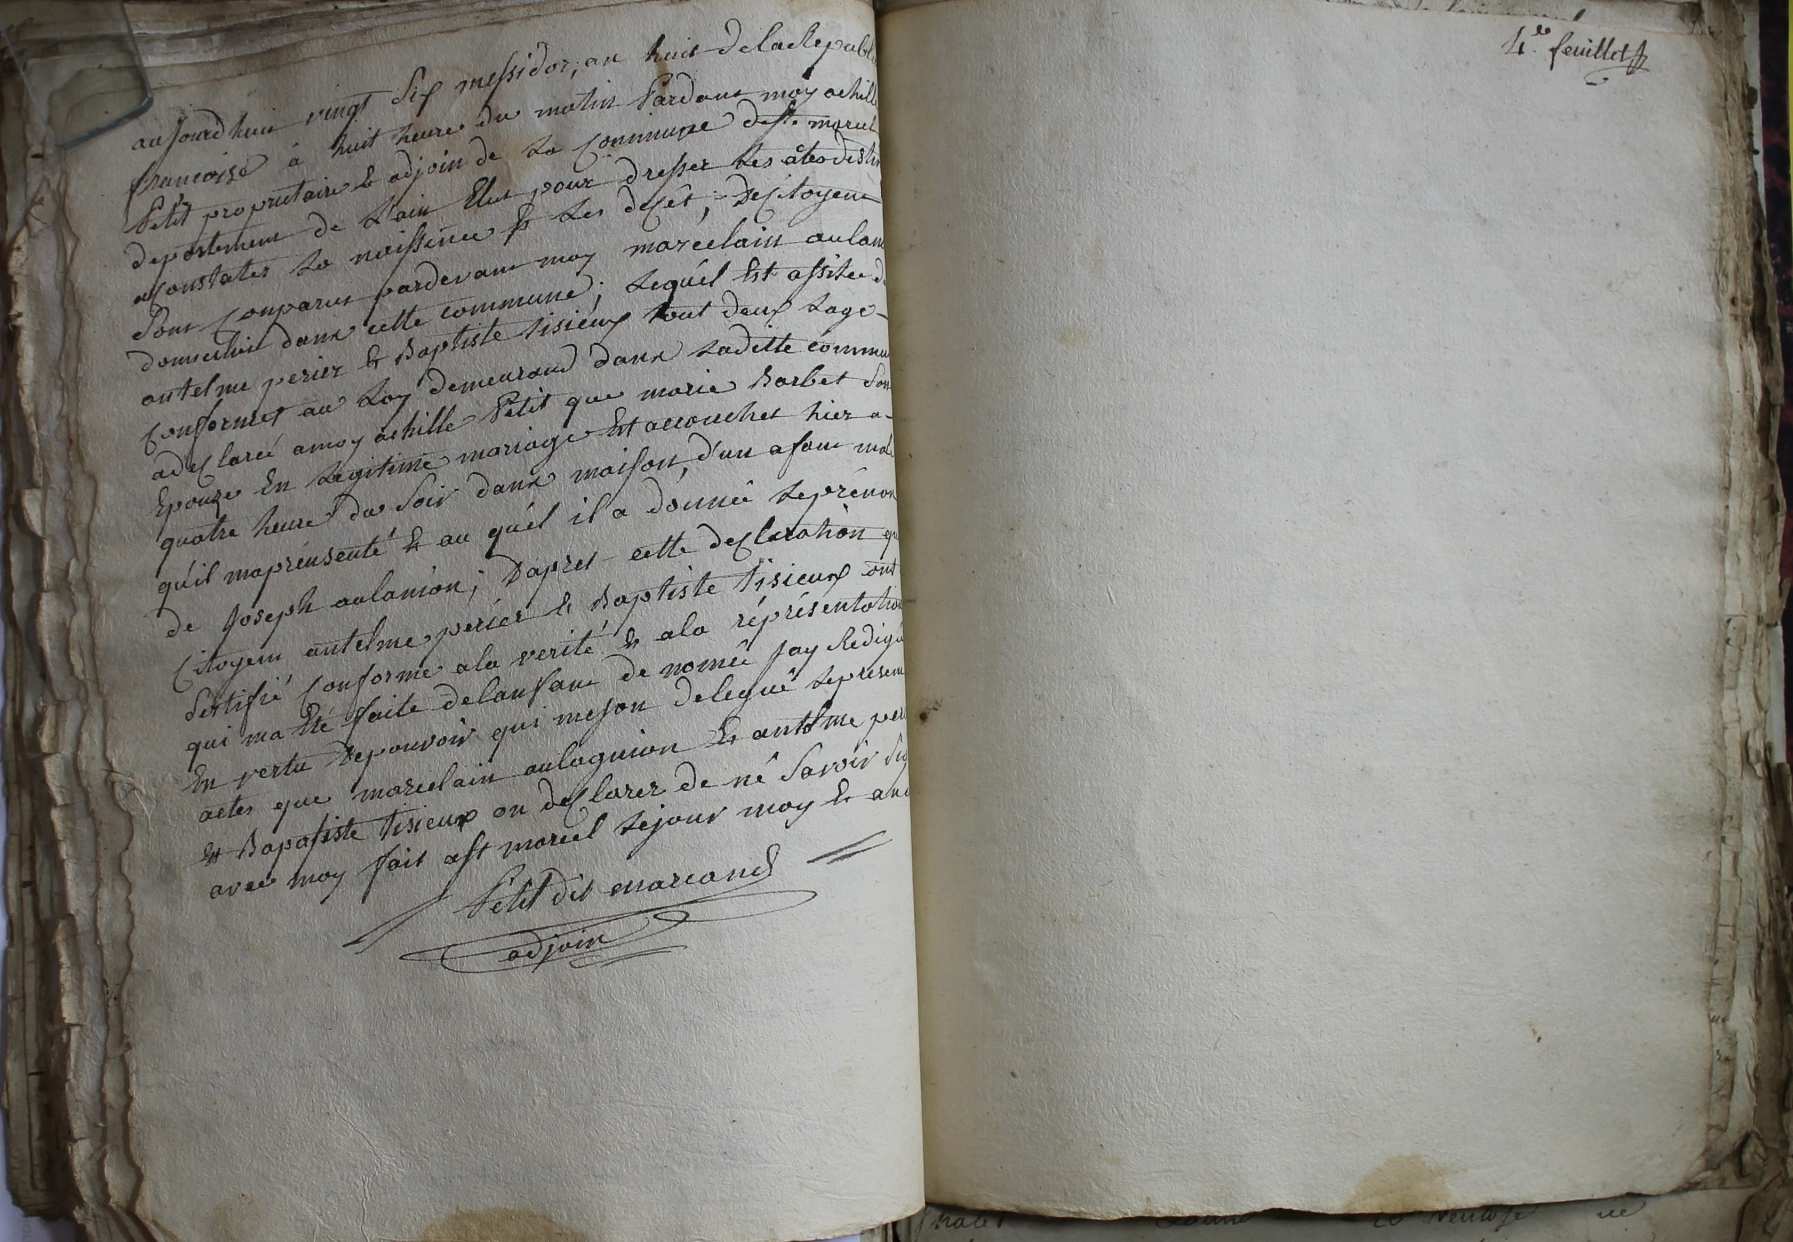 aujourd'huit vingt six messidor, an huit de la Republi
francoise à huit heure du matin Pardeant moy achille
Petit propriutaire & adjoin de la Commune de St. marcel
departement de L'ain Elut pour dresser les actes destin
a Constater La naissence & Les deCét, deCitoyens
Sont Comparut pardevant moy marcelain aulani
domicilié dans cette commune; Lequél Est assitee d
antelme perier & Baptiste tisieux tout deux Lage
Conformet au Loy demeurand dans Laditte commu
adeClaréé amoy achille Petit que marie Barbet Son
Epouze En Legitime mariage Est accouchet hier a
quatre heure du Soir dans maison, d'un afant mal
quil maprensenté & au quél il a donnéé Le prénon
de Joseph aulanion; Dapret cette deClaration que
Citoyens antelme periér & Baptiste tisieux ont
Sertifié Conforme ala verité & ala réprésentation
qui ma Eté faite delanfant de nomée Jay Redigé
En vertu de pouvoir qui meson delegué Le présent
actes que marcelain aulagnion & antelme peri
& Bapatiste tisieux on deClarer de né Savoir Sig
avec moy fait aSt marcel Lejour moy & an
Petit dit marcand
adjoin
4.e feuillet